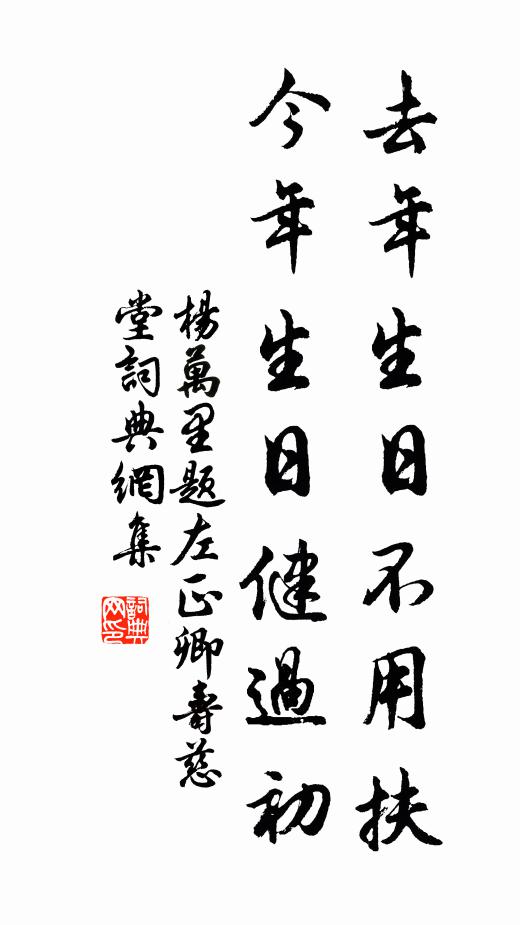 去年生日不用扶
今年生日健過初
楊萬里題左正卿壽慈
堂詞典網集
詞典
网印